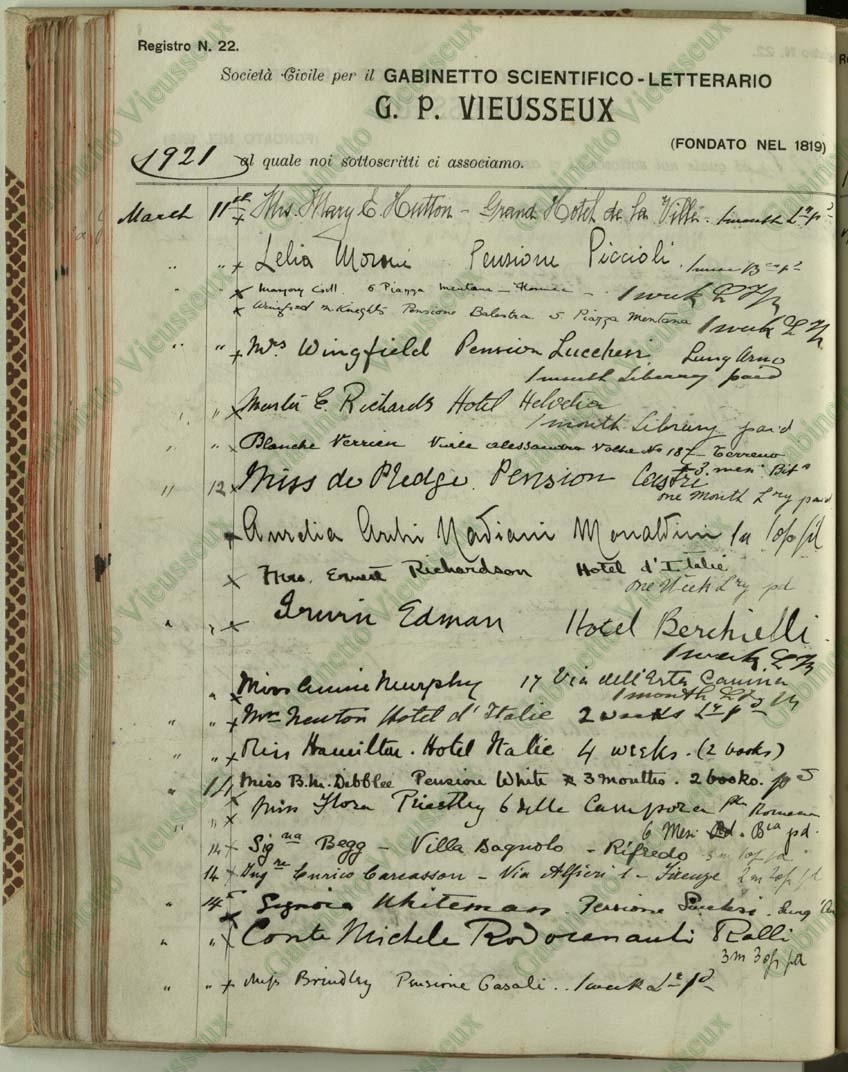 Registro N. 22.
Società Civile per il GABINETTO SCIENTIFICO-LETTERARIO
G. P. VIEUSSEUX
(FONDATO NEL 1819)
1921 al quale noi sottoscritti ci associamo.
March 11th Mrs. Mary E. Hutton - Grand Hotel de la Ville. 1 month Lry pd
" " Lelia Pensione Piccioli.
6 Piazza Mentana - 1 week
Winifred M Knights Pensione Balestra 5 Piazza Mentana 1 week
" " Mrs Wingfield Pension Lucchesi Lung Arno
1 month Library paid
" " E. Richards Hotel Helvetia
1 month Library paid
" " Blanche Viale Alessandro Volta No 18 Terreno
3 mesi
" 12 Miss de Pledge. Pension Castri
one month Lry paid
Aurelia Nadiani Monaldini
Mrs. Ernest Richardson Hotel d'Italie
one week Lry pd
" " Irwin Edman Hotel Berchielli
1 week
" Miss Annie Murphy 17 Via dell'Erta Canina
1 month
" " Mrs Newton Hotel d'Italie 2 weeks Lry pd
" " Miss Hamilton. Hotel Italie 4 weeks. (2 books)
" 14 Miss B.M. Debblee Pensione White 3 months. 2 books. pd
" " Miss Flora Priestley 6 delle Campora Romana
6 Mesi pd.
14 Signa Begg - Villa Dagnolo - Rifredo
14 Ingre Enrico Carcasson - Via Alfieri 1 - Firenze
" 14 Signora Whiteman. Pensione
" " Conte Michele Rodocanachi Ralli
3m
" " Miss Brindley Pensione Casali.. 1 week Lry pd
Gabinetto Vieusseux